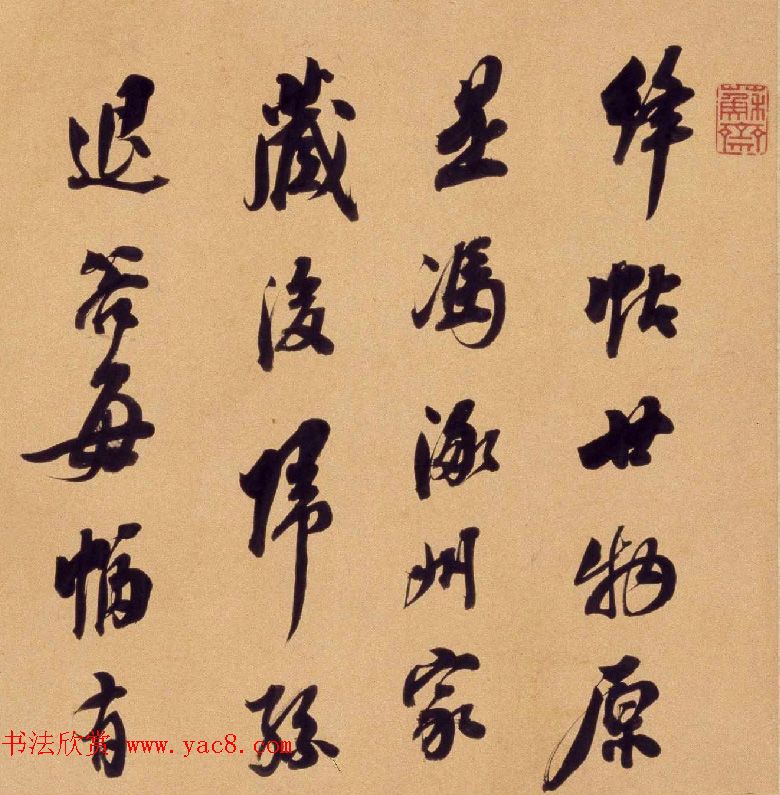 绛帖廿物原
是馮涿州家
藏後歸孫
退谷每幅有
蘇齋
书法欣赏 www.yac8.com